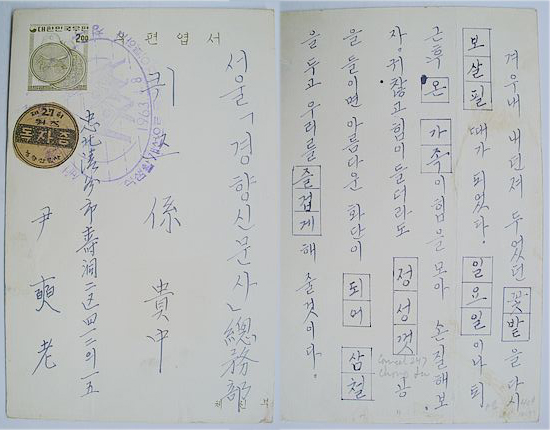 대한민국우편
2.00
우편엽서
서울「경향신문사」總務部
퀴즈 係 貴中
제27회
퀴즈
독자증
忠北淸州市壽洞二区四二二의一五
尹奭老
체신부
겨우내 내던져 두었던 꽃밭을 다시
보살필 때가 되었다. 일요일이나 퇴
근후 온 가족이 힘을 모아 손질해보
자. 귀찮고 힘이 들더라도 정성껏 공
을 들이면 아름다운 화단이 되어 삼철
을 두고 우리를 즐겁게 해 줄것이다.